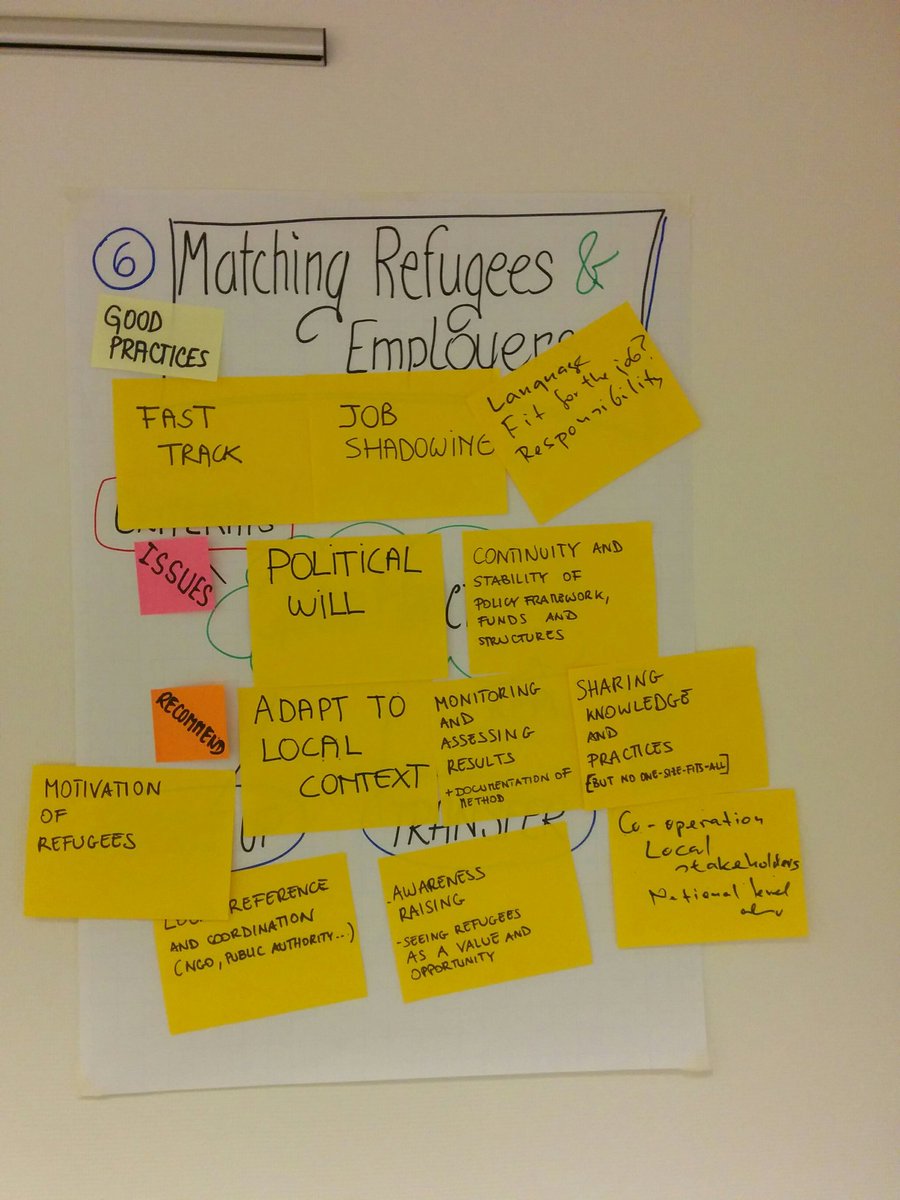 6
Matching Refugees &
Employers
GOOD
PRACTICES
FAST
TRACK
JOB
SHADOWING
Language
Fit for the job?
Responsibility
ISSUES
POLITICAL
WILL
CONTINUITY AND
STABILITY OF
POLICY FRAMEWORK,
FUNDS AND
STRUCTURES
RECOMMEND
ADAPT TO
LOCAL
CONTEXT
MONITORING
AND
ASSESSING
RESULTS
+ DOCUMENTATION OF
METHOD
SHARING
KNOWLEDGE
AND
PRACTICES
[BUT NO ONE-SIZE-FITS-ALL]
MOTIVATION
OF
REFUGEES
TRANSFER
REFERENCE
AND COORDINATION
(NGO, PUBLIC AUTHORITY...)
- AWARENESS
RAISING
- SEEING REFUGEES
AS A VALUE AND
OPPORTUNITY
Co-operation
Local
stakeholders
National level